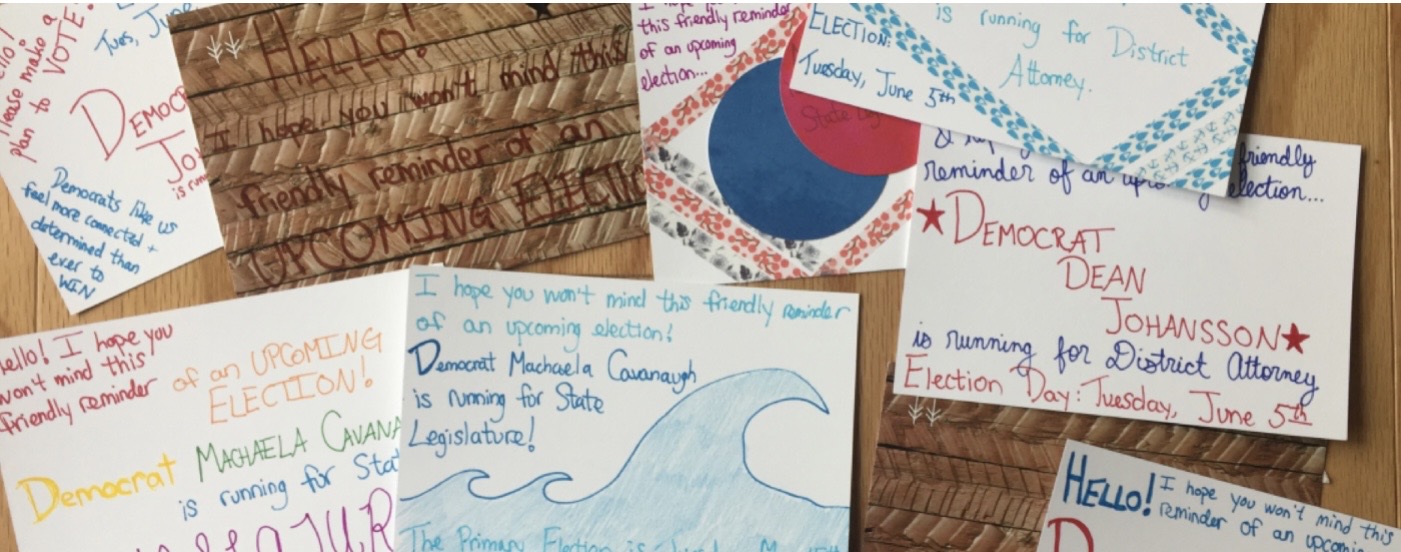 Hello!
Please make a
plan to VOTE!
Tues, June
DEMOCR
Democrats like us
feel more connected +
determined than
ever to
WIN
HELLO!
I hope you won't mind this
friendly reminder of an
UPCOMING ELECTIO
I hope you
this friendly reminder
of an upcoming
election...
State
ELECTION:
Tuesday, June 5th
is running for District
Attorney.
friendly
reminder of an election...
★DEMOCRAT
DEAN
JOHANSSON★
is running for District Attorney
Election Day: Tuesday, June 5th
Hello! I hope you
won't mind this
friendly reminder
of an UPCOMING
ELECTION!
Democrat MACHAELA CAVANA
is running for Stat
I hope you won't mind this friendly reminder
of an upcoming election!
Democrat Machaela Cavanaugh
is running for State
Legislature!
The Primary Election is
HELLO! I hope you won't mind this
reminder of an upcoming
D